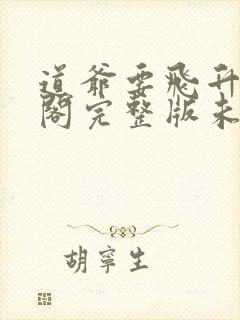 道爺要飛升
閣完整版未
胡寧生